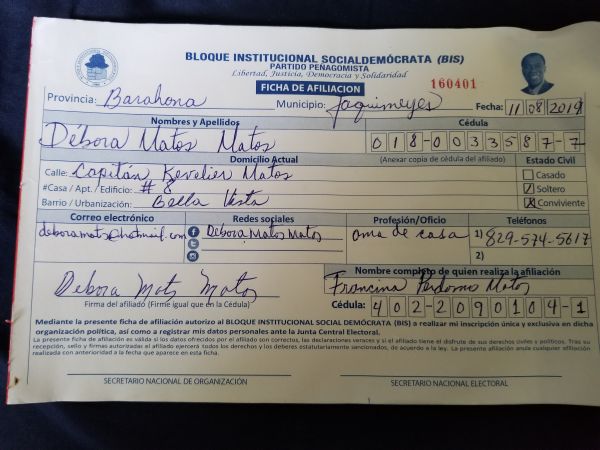 BLOQUE INSTITUCIONAL SOCIALDEMÓCRATA (BIS)
PARTIDO PEÑAGOMISTA
Libertad, Justicia, Democracia y Solidaridad
FICHA DE AFILIACION
160401
Provincia: Barahona Municipio: Jaquimeyes Fecha: 11/08/2019
Nombres y Apellidos Cédula
Débora Matos Matos 018-0033587-7
Domicilio Actual (Anexar copia de cédula del afiliado) Estado Civil
Calle: Capitán Kevelier Matos Casado
#Casa / Apt. / Edificio: # 8 Soltero
Barrio / Urbanización: Bella Vista Conviviente
Correo electrónico Redes sociales Profesión/Oficio Teléfonos
deboramatos@hotmail.com Debora Matos Matos ama de casa 1) 829-574-5617
2)
Debora Mats Matos
Firma del afiliado (Firme igual que en la Cédula)
Nombre completo de quien realiza la afiliación
Francina Perdomo Matos
Cédula: 402-2090104-1
Mediante la presente ficha de afiliación autorizo al BLOQUE INSTITUCIONAL SOCIAL DEMÓCRATA (BIS) a realizar mi inscripción única y exclusiva en dicha
organización política, así como a registrar mis datos personales ante la Junta Central Electoral.
La presente ficha de afiliación es válida si los datos ofrecidos por el afiliado son correctos, las declaraciones veraces y si el afiliado tiene el disfrute de sus derechos civiles y políticos. Tras su
recepción, sello y firmas autorizadas el afiliado ejercerá todos los derechos y los deberes estatutariamente sancionados, de acuerdo a la ley. La presente afiliación anula cualquier afiliación
realizada con anterioridad a la fecha que aparece en esta ficha.
SECRETARIO NACIONAL DE ORGANIZACIÓN SECRETARIO NACIONAL ELECTORAL